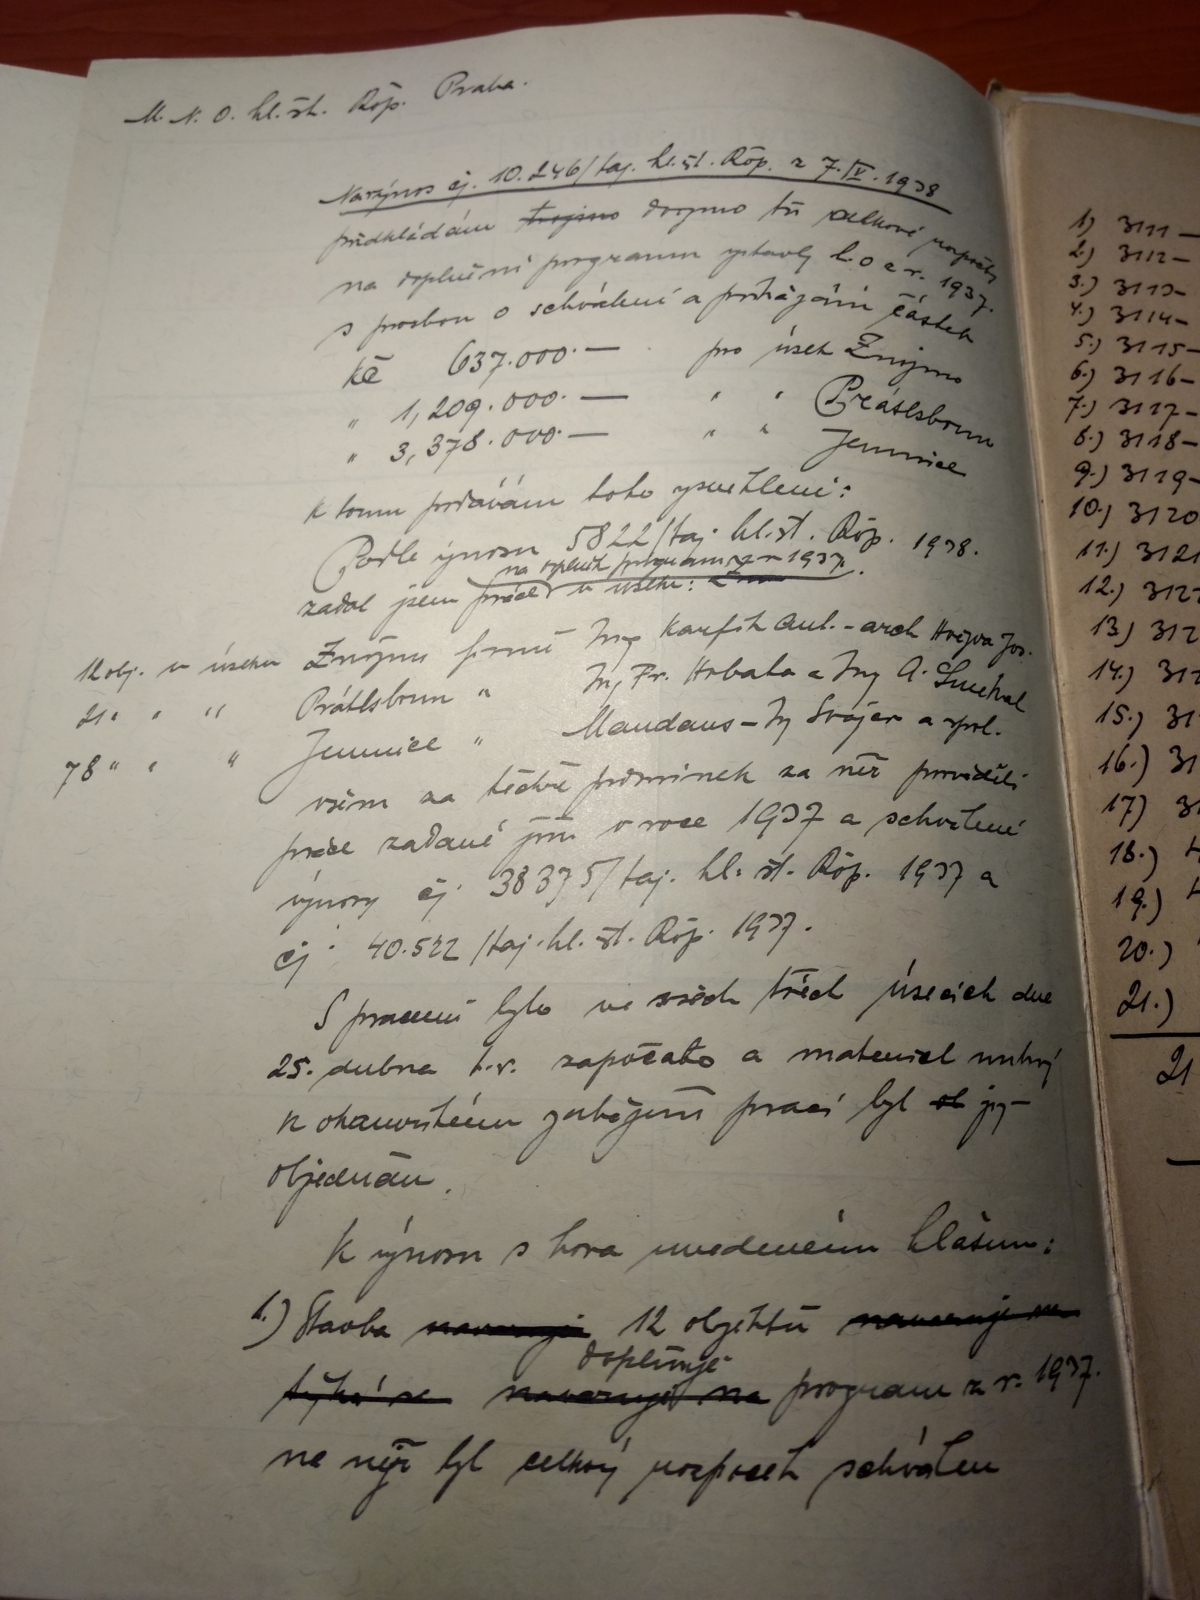 M. N. O. hl. št. Řop. Praha.
Na výnos čj. 10.246/taj. hl. št. Řop. z 7. IV. 1938
předkládám trojmo dvojmo tři celkové rozpočty
na doplnění programu výstavby l. o z r. 1937.
s prosbou o schválení a poukázání částek
Kč 637.000.— pro úsek Znojmo
„ 1,209.000.— „ „ Prátlsbrun
„ 3,378.000.— „ „ Jemnice
K tomu podávám toto vysvětlení:
Podle výnosu 5822/taj. hl. št. Řop. 1938.
na doplněk programu z r 1937.
zadal jsem práce v úseku:
12 obj. v úseku Znojmo firmě Ing Karfík Ant. - arch Hrejva Jos.
21 „ „ „ Prátlsbrun „ Ing Fr. Hrbata a Ing A. Smekal
78 „ „ „ Jemnice „ Mandaus - Ing Svojer a spol.
vším za těchže podmínek za něž prováděli
práce zadané jim v roce 1937 a schválené
výnosy čj. 38375/taj. hl. št. Řop. 1937 a
čj. 40.522/taj. hl. št. Řop. 1937.
S pracemi bylo ve všech třech úsecích dne
25. dubna t.r. započato a materiál nutný
k okamžitému zahájení prací byl již
objednán.
K výnosu s hora uvedenému hlásím:
1.) Stavba navazuje 12 objektů navazuje na
doplňuje
týká se navazuje na program z r. 1937.
na nějž byl celkový rozpočet schválen
1) 3111 —
2.) 3112 —
3.) 3113 —
4.) 3114 —
5.) 3115 —
6.) 3116 —
7.) 3117 —
8.) 3118 —
9.) 3119 —
10.) 3120
11.) 3121
12.) 312
13) 312
14.) 31
15.) 31
16.) 31
17) 3
18.)
19.)
20.)
21.)
21